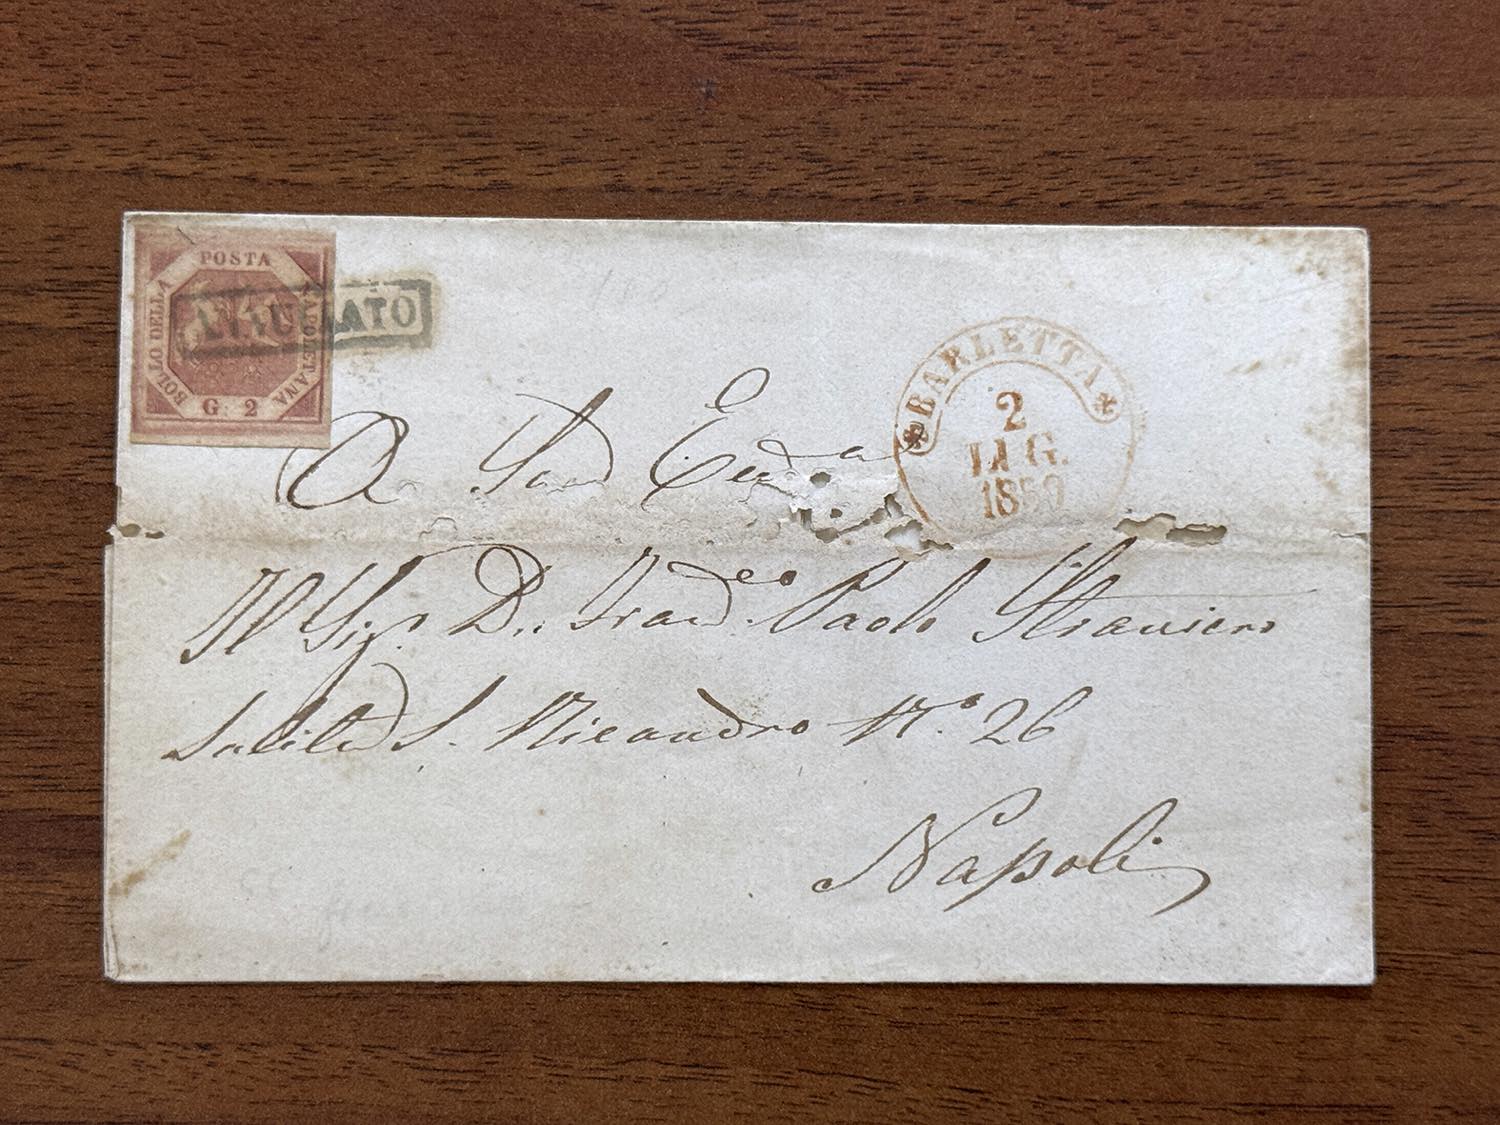 BOLLO DELLA POSTA NAPOLETANA
G. 2
ANNULLATO
* BARLETTA *
2
LUG.
1859
A Sua Ecc.za
Il Sig.r D.n Franc.co Paolo Straniero
Salita S. Nicandro N.° 26
Napoli